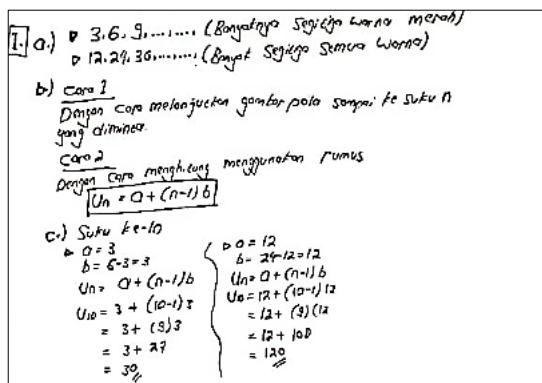 1. a.) ▷ 3, 6, 9, ........ (Banyaknya segitiga warna merah)
▷ 12, 24, 36, ........ (Banyak segitiga semua warna)
b) cara 1
Dengan cara melanjutkan gambar pola sampai ke suku n
yang diminta.
cara 2
Dengan cara menghitung menggunakan rumus
Un = a + (n-1) b
c.) Suku ke-10
▷ a = 3
b = 6-3 = 3
Un = a + (n-1) b
U10 = 3 + (10-1) 3
= 3 + (9) 3
= 3 + 27
= 30
▷ a = 12
b = 24-12 = 12
Un = a + (n-1) b
U10 = 12 + (10-1) 12
= 12 + (9) (12
= 12 + 108
= 120